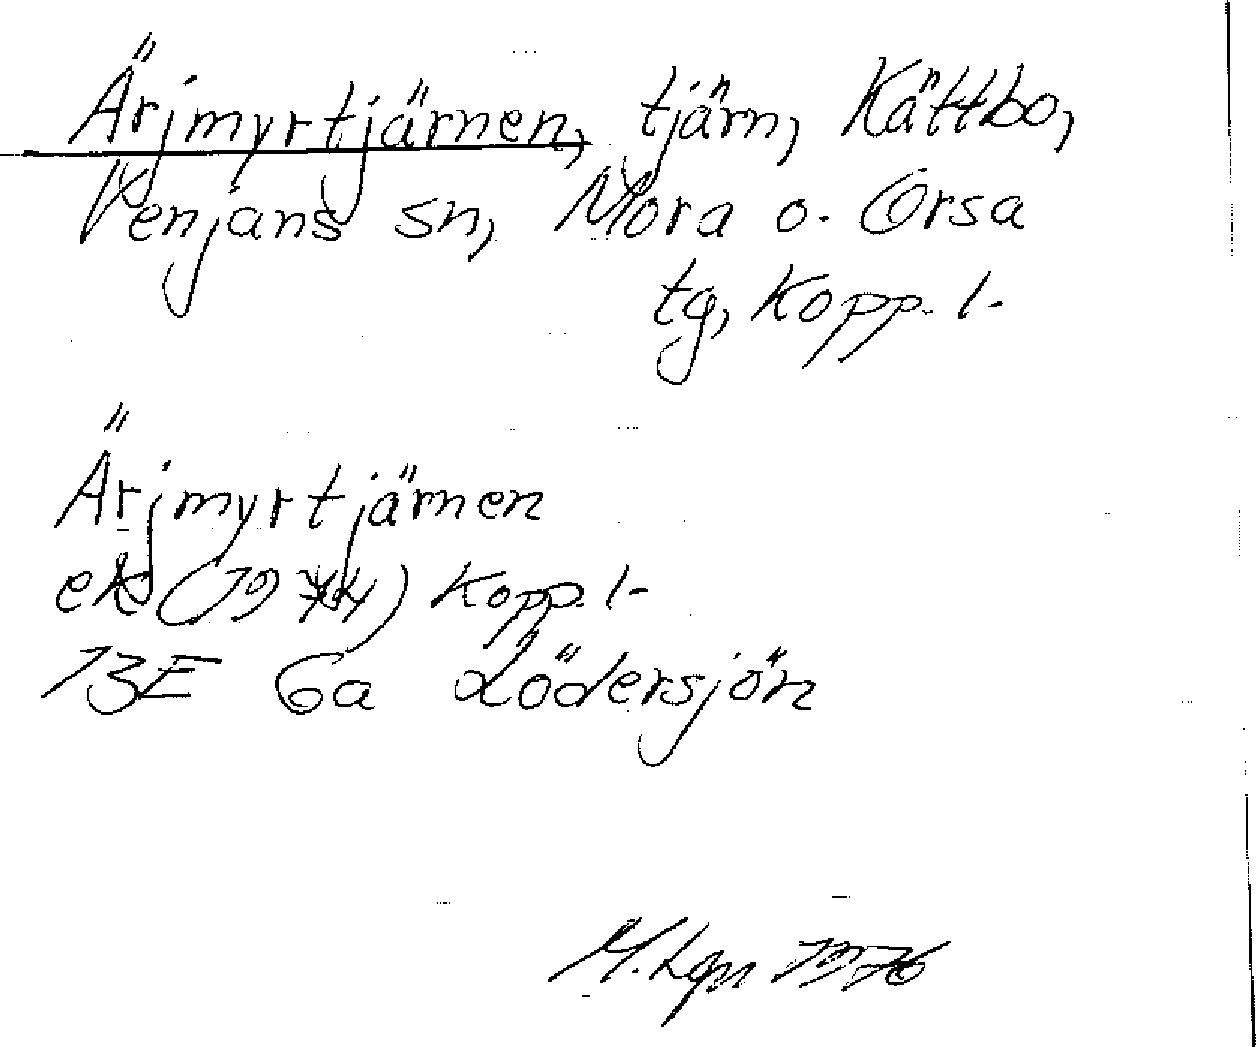 Ärjmyrtjärnen, tjärn, Kättbo,
Venjans sn, Mora o. Orsa
tg, Kopp. l.
Ärjmyrtjärnen
ek (1974) Kopp. l.
13E 6a Lödersjön
M. Lgn 1976